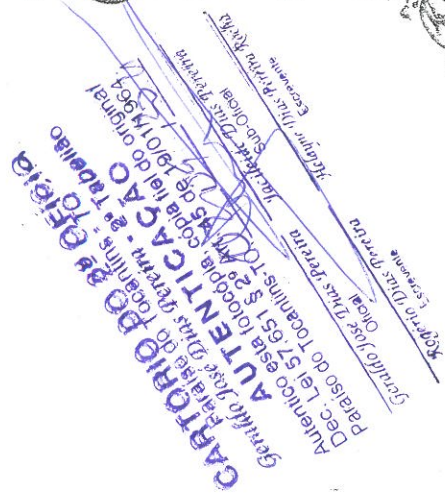 CARTORIO DO 2º OFICIO
Paraíso do Tocantins - TO
Geraldo José Dias Pereira - 2º Tabelião
AUTENTICAÇÃO
Autentico esta fotocópia, copia fiel do original
Dec. Lei 57.651 § 2º Art. 45 de 19/01/1964
Paraíso do Tocantins-TO,
Geraldo José Dias Pereira
Oficial
Dias Pereira
Sub-Oficial
Rogério Dias Pereira
Escrevente
Dias Pereira Rocha
Escrevente